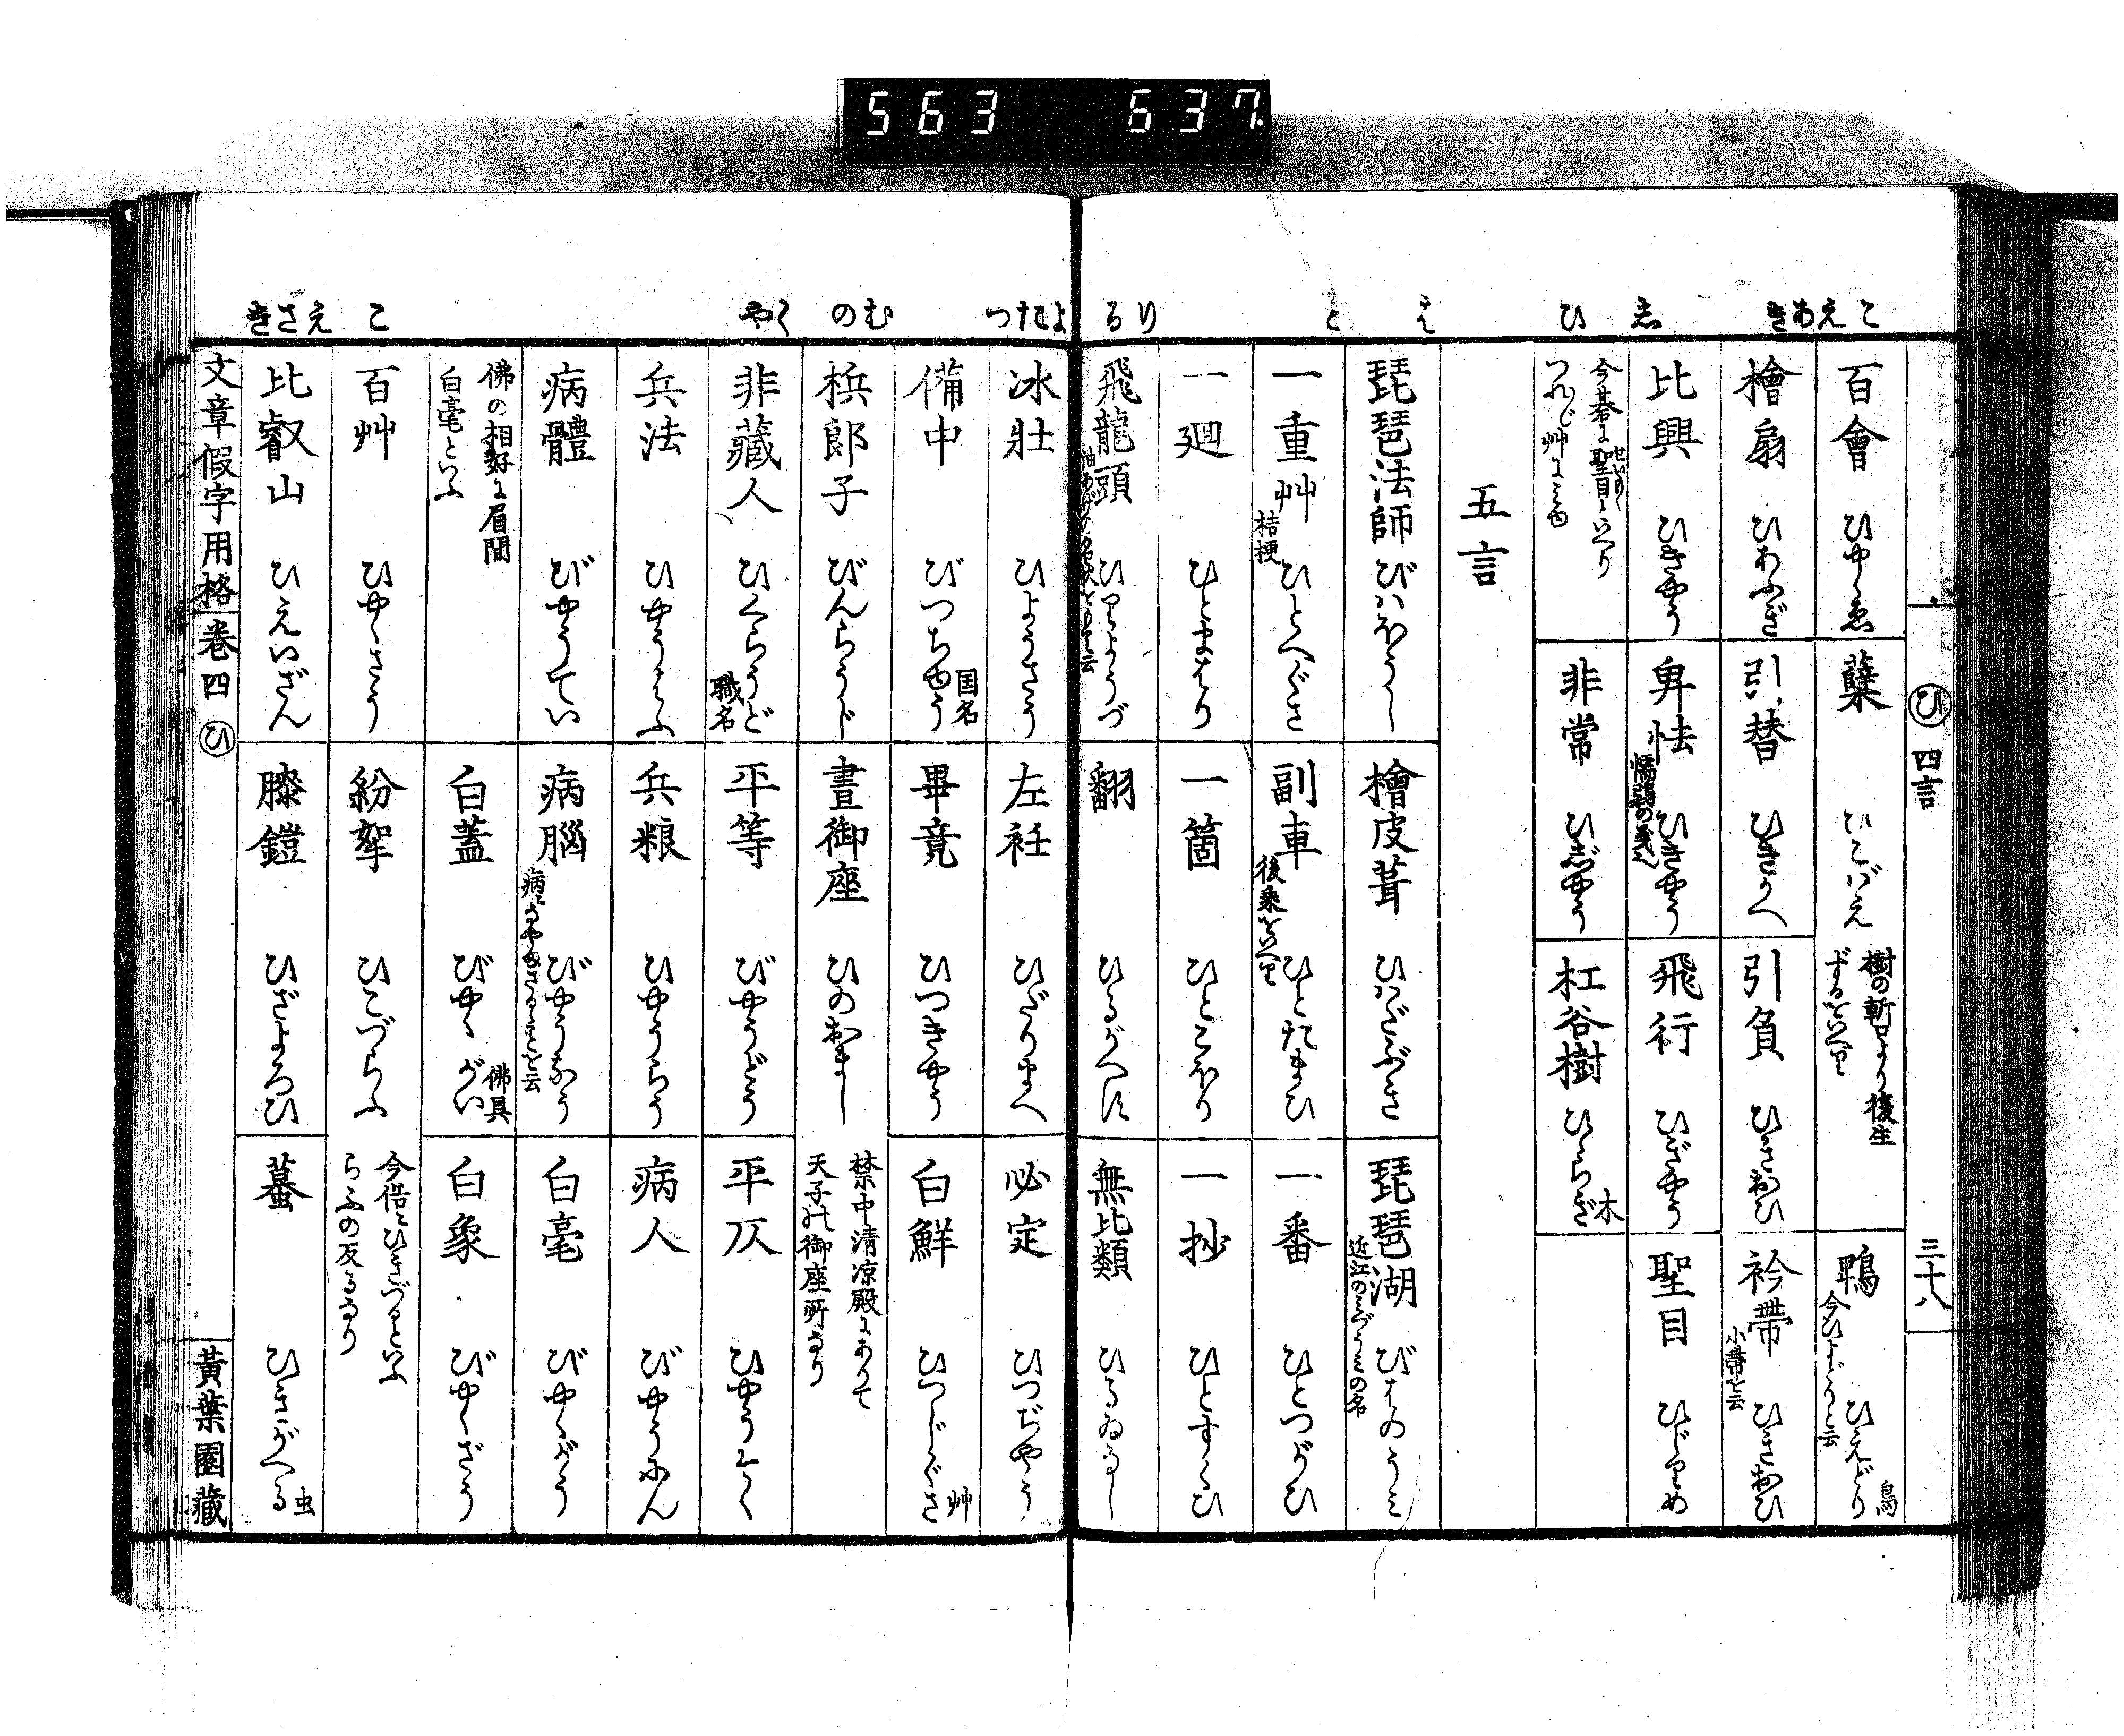 563 637
こ えあき し ひ は と り る
ひ 四言 三十八
百會 ひやくゑ
蘖 ひこばえ 樹の斬口より復生ずるをいへり
鵯 ひえどり 鳥 今ひよどりと云
檜扇 ひあふぎ
引替 ひきかへ
引負 ひきおひ
衿帶 ひきおひ 小帶を云
比興 ひきやう
卑怯 ひきやう 懦弱の義也
飛行 ひぎやう
聖目 ひじりめ
今碁に聖目といへり
つれ〴〵艸に
非常 ひじやう
杠谷樹 ひゝらぎ 木
五言
琵琶法師 びはほうし
檜皮葺 ひはだぶき
琵琶湖 びはのうみ 近江のみづうみの名
一重艸 ひとへぐさ 桔梗
副車 ひとたまひ 後乘をいへり
一番 ひとつがひ
一廻 ひとまはり
一箇 ひとこほり
一抄 ひとすくひ
飛龍頭 ひりようづ
翻 ひるがへす
無比類 ひるゐなし
よたつ むの くや こ えさき
冰壯 ひようさう
左衽 ひだりまへ
必定 ひつぢやう
備中 びつちゆう 国名
畢竟 ひつきやう
白鮮 ひつじぐさ 艸
梹郎子 びんらうじ
晝御座 ひのおまし 禁中清凉殿にありて
天子の御座所なり
非藏人 ひくらうど 職名
平等 びやうどう
平仄 ひやうそく
兵法 ひやうはふ
兵粮 ひやうらう
病人 びやうにん
病體 びやうてい
病腦 びやうなう
白毫 びやくがう
佛の相好に眉間
白毫といふ
白蓋 びやくがい 佛具
白象 びやくざう
百艸 ひやくさう
紛挐 ひこづらふ 今俗にひきづるといふ
らふの反るなり
比叡山 ひえいざん
膝鎧 ひざよろひ
蟇 ひきがへる 虫
文章假字用格 卷四 ひ 黃葉園藏